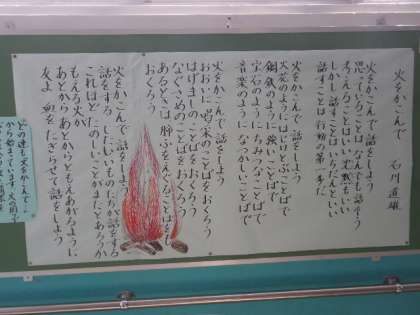 火をかこんで　石川道雄
火をかこんで 話をしよう
思っていることは なんでも話そう
考えることはいい 沈黙もいい
しかし 話すことは いちだんといい
話すことは 行動の第一歩だ
火をかこんで 話をしよう
火花のように はじけとぶことばで
鋼鉄のように 強いことばで
宝石のように ちみつなことばで
音楽のように なつかしいことばで
火をかこんで 話をしよう
おおいに 唱采のことばをおくろう
はげましのことばをおくろう
なぐさめのことばをおくろう
あるときは 肺ぷをえぐることばをも
おくろう
火をかこんで 話をしよう
話をする したしいものたちが 話をする
これほど たのしいことが またとあろうか
もえる火が
あとから あとからと もえあがるように
友よ 血をたぎらせて 話をしよう
どの連も 火をかこんで
から始まっています